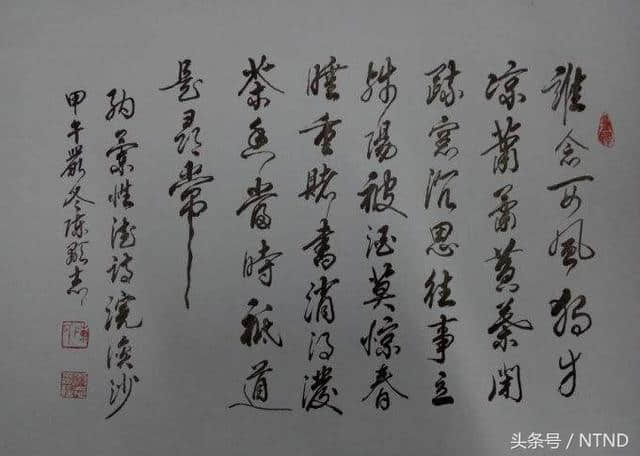 誰念西風獨自
凉蕭蕭黃葉閉
疏窓沉思往事立
殘陽被酒莫惊春
睡重賭書消得潑
茶香當時祇道
是尋常
納蘭性德詩浣溪沙
甲午嚴冬陳志
头条号 / NTND